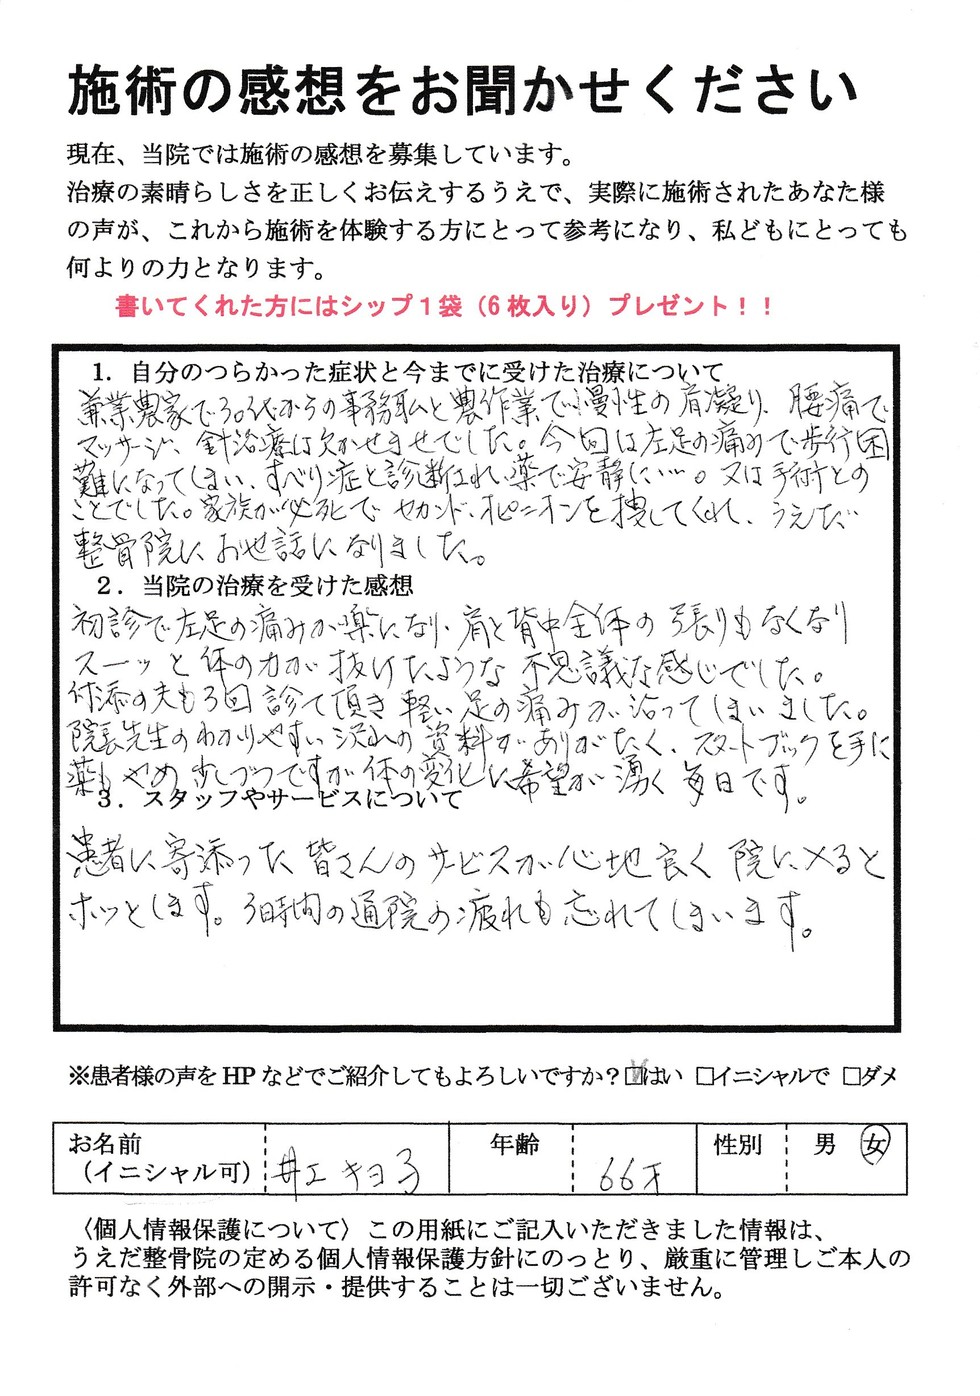 施術の感想をお聞かせください
現在、当院では施術の感想を募集しています。
治療の素晴らしさを正しくお伝えするうえで、実際に施術されたあなた様
の声が、これから施術を体験する方にとって参考になり、私どもにとっても
何よりの力となります。
書いてくれた方にはシップ１袋（6 枚入り）プレゼント！！
1. 自分のつらかった症状と今までに受けた治療について
兼業農家で30代からの事務職と農作業で慢性の肩凝り、腰痛で
マッサージ、針治療は欠かせませでした。今回は左足の痛みで歩行困
難になってしまい、すべり症と診断され、薬で安静に…。又は手術との
ことでした。家族が必死でセカンド、オピニオンを捜してくれ、うえだ
整骨院にお世話になりました。
２．当院の治療を受けた感想
初診で左足の痛みが楽になり、肩と背中全体の張りもなくなり
スーッと体の力が抜けたような不思議な感じでした。
付添の夫も3回診て頂き軽い足の痛みが治ってしまいました。
院長先生のわかりやすい 資料がありがたく、スタートブックを手に
薬もやめ少しづつですが体の変化に希望が湧く毎日です。
３．スタッフやサービスについて
患者に寄添った皆さんのサービスが心地良く院に入ると
ホッとします。3時間の通院の疲れも忘れてしまいます。
※患者様の声を HP などでご紹介してもよろしいですか？☑はい □イニシャルで □ダメ
お名前 年齢 性別 男 女
（イニシャル可） 井エ キヨ子 66才
〈個人情報保護について〉この用紙にご記入いただきました情報は、
うえだ整骨院の定める個人情報保護方針にのっとり、厳重に管理しご本人の
許可なく外部への開示・提供することは一切ございません。